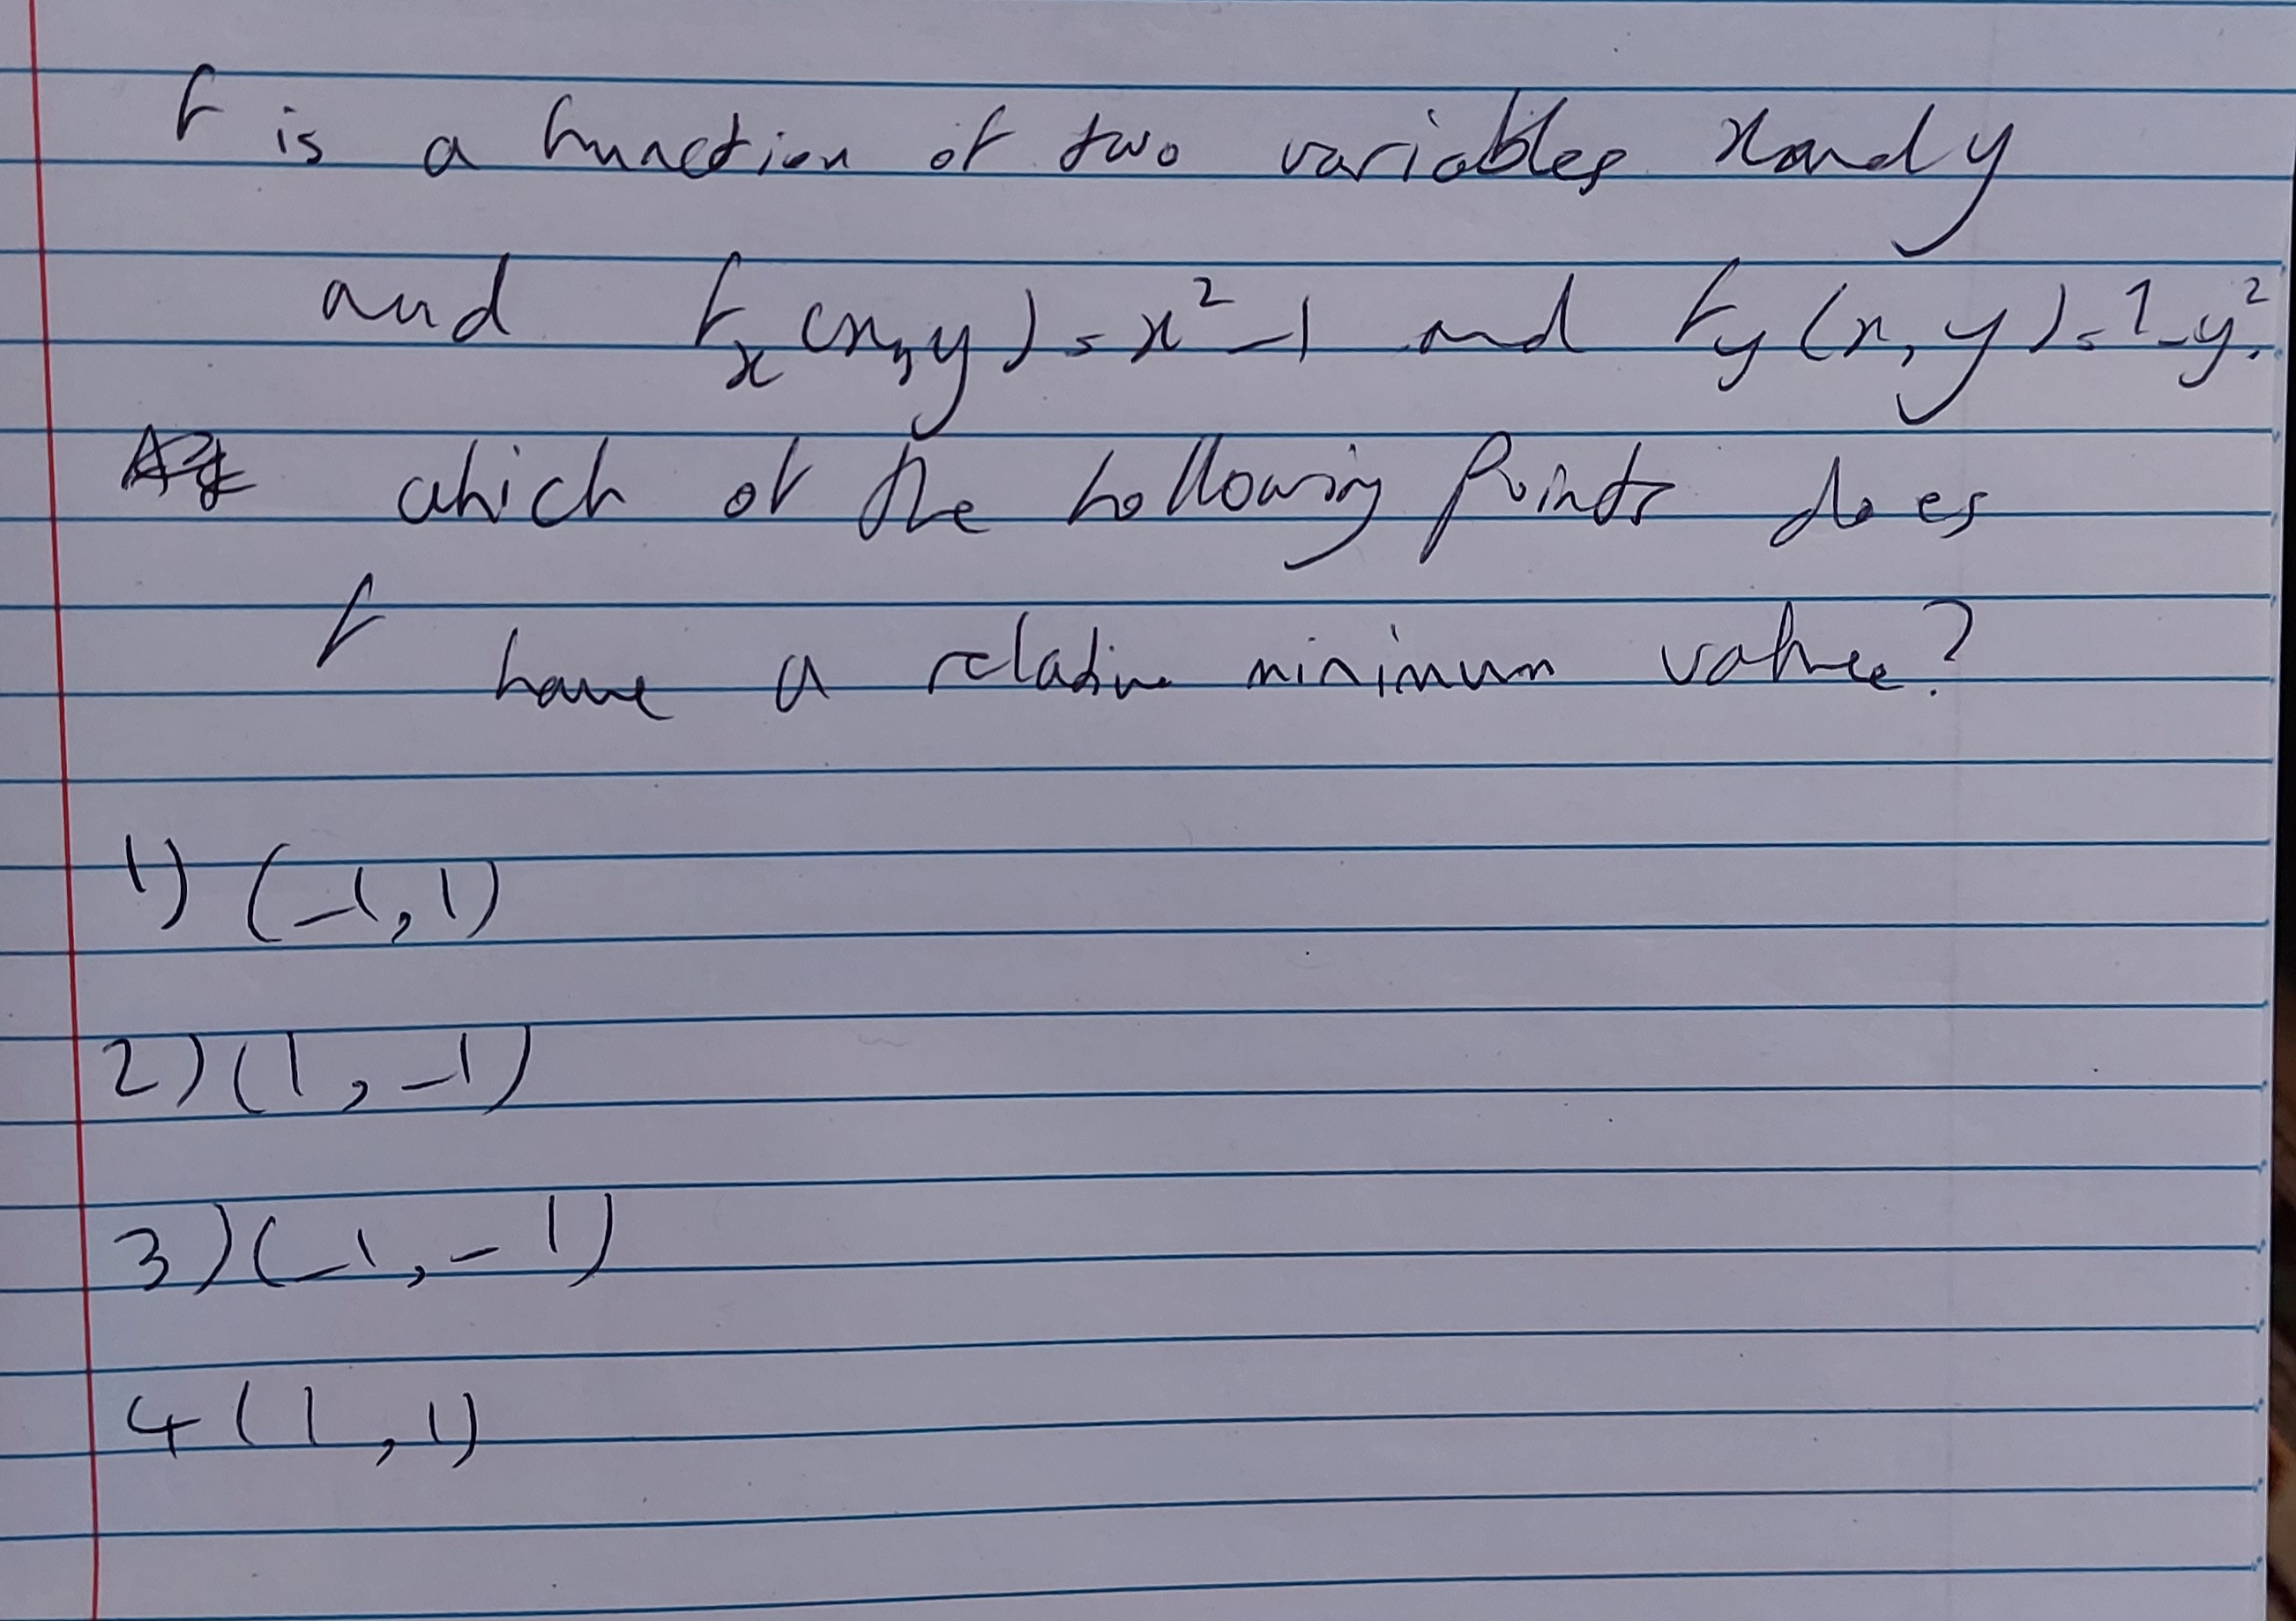 f is a function of two variables x and y
and f_x(x,y) = x² - 1 and f_y(x,y) = 1 - y².
which of the following points does
f have a relative minimum value?
1) (-1, 1)
2) (1, -1)
3) (-1, -1)
4 (1, 1)